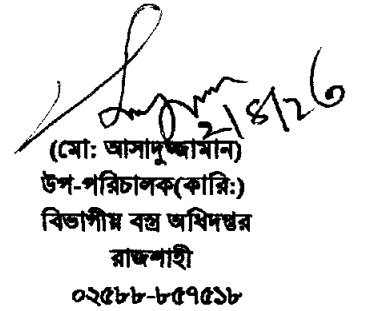 2/8/26
(মো: আসাদুজ্জামান)
উপ-পরিচালক(কারি:)
বিভাগীয় বস্ত্র অধিদপ্তর
রাজশাহী
০২৫৮৮-৮৫৭৫১৮